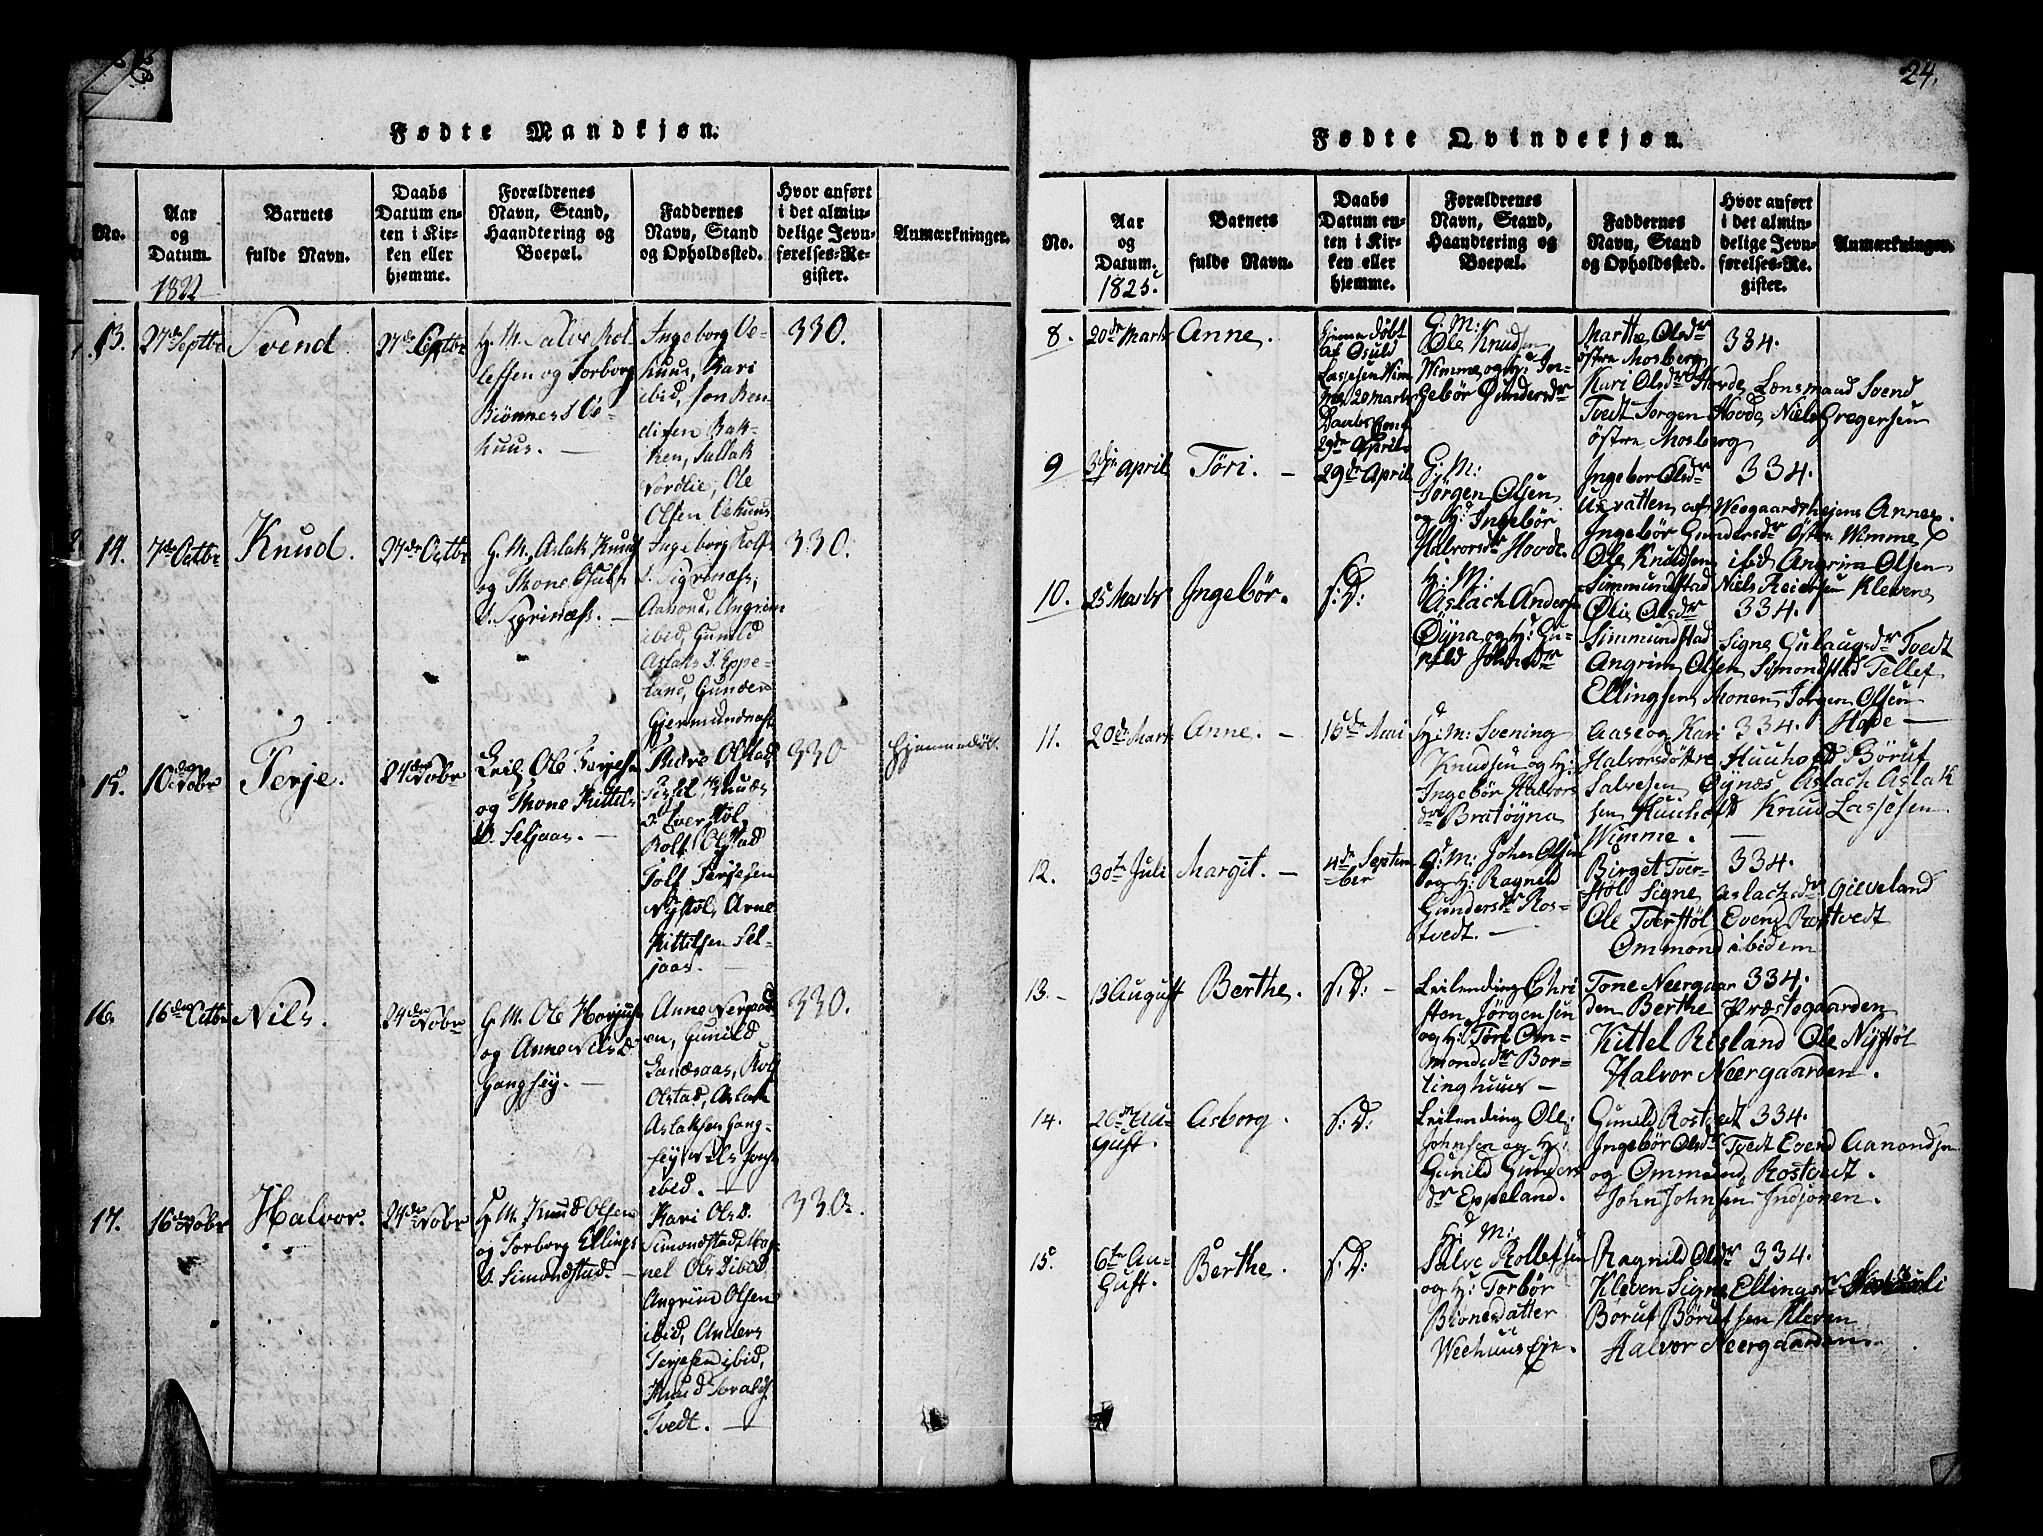 24.
Fødte Mandkjøn.
No.
Aar
og
Datum.
1822
Barnets
fulde Navn.
Daabs
Datum en-
ten i Kir-
ken eller
hjemme.
Forældrenes
Navn, Stand,
Haandtering og
Boepæl.
Faddernes
Navn, Stand
og Opholdssted.
Hvor anført
i det almin-
delige Jevn-
førelses-Re-
gister.
Anmærkninger.
13.
27de Septbr
Svend
27de Septbr
G. M. Salve Rol
lefsen og Torborg
Biønnes D. Ve-
huus. —
Ingeborg Ve-
huus, Kari
ibid, Jon
Bak-
ken, Tallak
Nordlie, Ole
Olsen Vehuus
330.
14.
7de Octbr
Knud.
27de Octbr
G. M. Aslak Knuds
og Thone
D. —
Ingeborg Rolfs
D.
Aamond, Angrim
ibid, Gunild
Aslaks D. Eppe-
land, Gunder
Gjermundnæs
330.
15.
10de Novbr
Terje.
24de Novbr
Leil. Ole Terjesen
og Thone Kittels
D. Seljaas. —
Olstad
Sissel Knuds
D. Tverstøl,
Rolf Olstad
Tolf Terjesen
Nystøl, Arne
Kittilsen Sel-
jaas. —
330
Hjemmedøbt
16.
16de Octbr
Nils.
24de Novbr
G. M. Ole
og Anne Nils D.
Gangsey. —
Anne Nergaard
en, Gunild
Landsaas, Rolf
Olstad, Aslak
Aslaksen Gang-
sey, Nils
ibid. —
330.
17.
16de Novbr
Halvor.
24de Novbr
G. M. Knud Olsen
og Torborg Ellings
D. Simonstad. —
Kari Ols D.
Simondstad,
Ols D ibid,
Angrim Olsen
ibid, Anders
Terjesen ibid,
Knud Torals
Tvedt. —
330.
Fødte Qvindekjøn.
No.
Aar
og
Datum.
1825.
Barnets
fulde Navn.
Daabs
Datum en-
ten i Kir-
ken eller
hjemme.
Forældrenes
Navn, Stand,
Haandtering og
Boepæl.
Faddernes
Navn, Stand
og Opholdssted.
Hvor anført
i det almin-
delige Jevn-
førelses-Re-
gister.
Anmærkninger.
8.
20de Marts
Anne.
Hjemme døbt
af Osuld
Lassesen Wim
me 20 Marts
Daabs Conf
29de April
G: M:
Ole Knudsen
Wimme og H: In-
gebør Gundersdr
Marthe Olsdr
østre Mosberg
Kari Olsdr Hovde, Lensmand Svend
Tvedt Jørgen Hovde, Niels Gregersen
østre Mosberg
334.
9
3die April
Töri. —
29de April
G: M:
Jørgen Olsen
og H: Ingebør
Halvorsdr Hovde.
Ingebor Olsdr
Uxvatten af Weegaardsheiens Annex.
Ingebør Gundersdr Østre Wimme,
Ole Knudsen ibid Angrim Olsen
Simmundstad Niels Reiersen Klevene
334.
10.
25 Marts
Ingebør.
S: D:
G: M:
Aslach Anders
Øyna og H: Gu-
nild Johnsdr
Olie Olsdr
Simmundstad Signe Gulaugsdr Tvedt
Angrim Olsen Simondstad Tellef
Ellingsen Monen Jørgen Olsen
Hode —
334.
11.
20de Marts
Anne. —
15de Mai
G: M: Svening
Knudsen og H:
Ingebør Halvors
dr Bratøyna
Aase og Kari
Halvorsdøttre Børuf
Salvesen Øynæs Aslach Aslak
sen Knud Lassesen
Wimme. —
334.
12.
30te Juli
Margit. —
4de Septem
ber
G: M: John Olsen
og H: Ragnild
Gundersdr Ros-
tvedt. —
Birget Tver-
støl Signe Aslachsdr Gieveland
Ole Tverstøl Evend Rostvedt
Ommond ibidem
334.
13. —
13 August
Berthe.
S: D: —
Leilending Chri
sten Jørgensen
og H: Töri Om-
mondsdr Bor-
tinghuus —
Tone Neergaar
den Berthe Præstegaarden
Kittel Risland Ole Nystøl
Halvor Neergaarden.
334,
14.
26de Au-
gust.
Asborg.
S: D:
Leilending Ole
Johnsen og H:
Gunild Gunders
dr Eppeland.
Gunild Rostvedt
Ingebør Olsdr Tvedt Evend Aanondsen
og Ommund Rostvedt.
John Johnsen Indsjønen.
334.
15.
6te Au-
gust.
Berthe.
S: D:
G: M:
Salve Rollefsen
og H: Torbör
Bionesdatter
Weehuus Eje.
Ragnild Olsdr
Kleven Signe Ellingsdr
Børuf Børufsen Kleven
Halvor Neergaarden.
334.